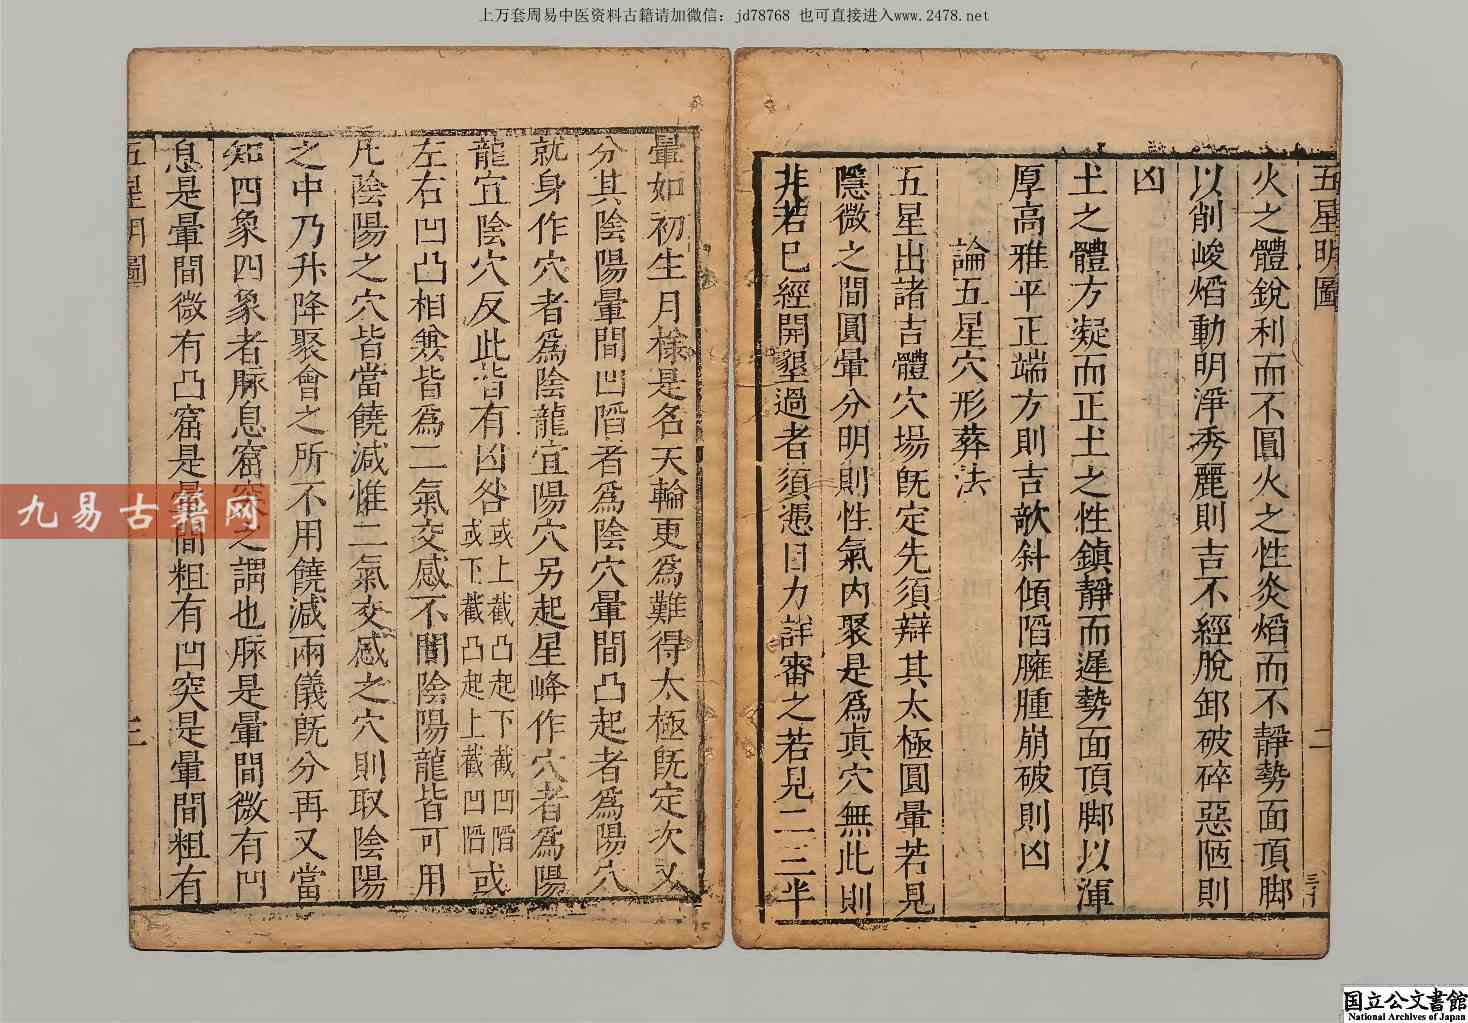 上万套周易中医资料古籍请加微信：jd78768 也可直接进入www.2478.net
五星明圖 二
火之體銳利而不圓火之性炎熖而不靜勢面頂脚
以削峻熖動明淨秀麗則吉不經脫卸破碎惡陋則
凶
土之體方凝而正土之性鎮靜而遲勢面頂脚以渾
厚高雅平正端方則吉欹斜傾陷臃腫崩破則凶
論五星穴形葬法
五星出諸吉體穴塲旣定先須辯其太極圓暈若見
隱微之間圓暈分明則性氣内聚是爲眞穴無此則
非若巳經開墾過者須憑目力詳審之若見二三半
暈如初生月樣是名天輪更爲難得太極旣定次又
分其陰陽暈間凹陷者爲陰穴暈間凸起者爲陽穴
就身作穴者爲陰龍宜陽穴另起星峰作穴者爲陽
龍宜陰穴反此皆有凶咎或上截凸起下截凹陷或下截凸起上截凹陷或
左右凹凸相兼皆爲二氣交感不問陰陽龍皆可用
凡陰陽之穴皆當饒減惟二氣交感之穴則取陰陽
之中乃升降聚會之所不用饒減兩儀旣分再又當
知四象四象者脉息窟突之謂也脉是暈間微有凹
息是暈間微有凸窟是暈間粗有凹突是暈間粗有
五星明圖
九易古籍网
国立公文書館
National Archives of Japan